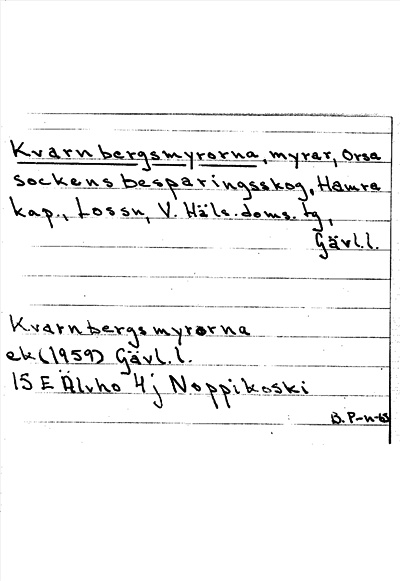 Kvarnbergsmyrorna, myrar, Orsa
sockens besparingsskog, Hamra
kap., Lossn, V. Häls. doms. tg,
Gävl.l.
Kvarnbergsmyrorna
ek (1959) Gävl.l.
15 E Älvho 4j Noppikoski
B. P-n-65